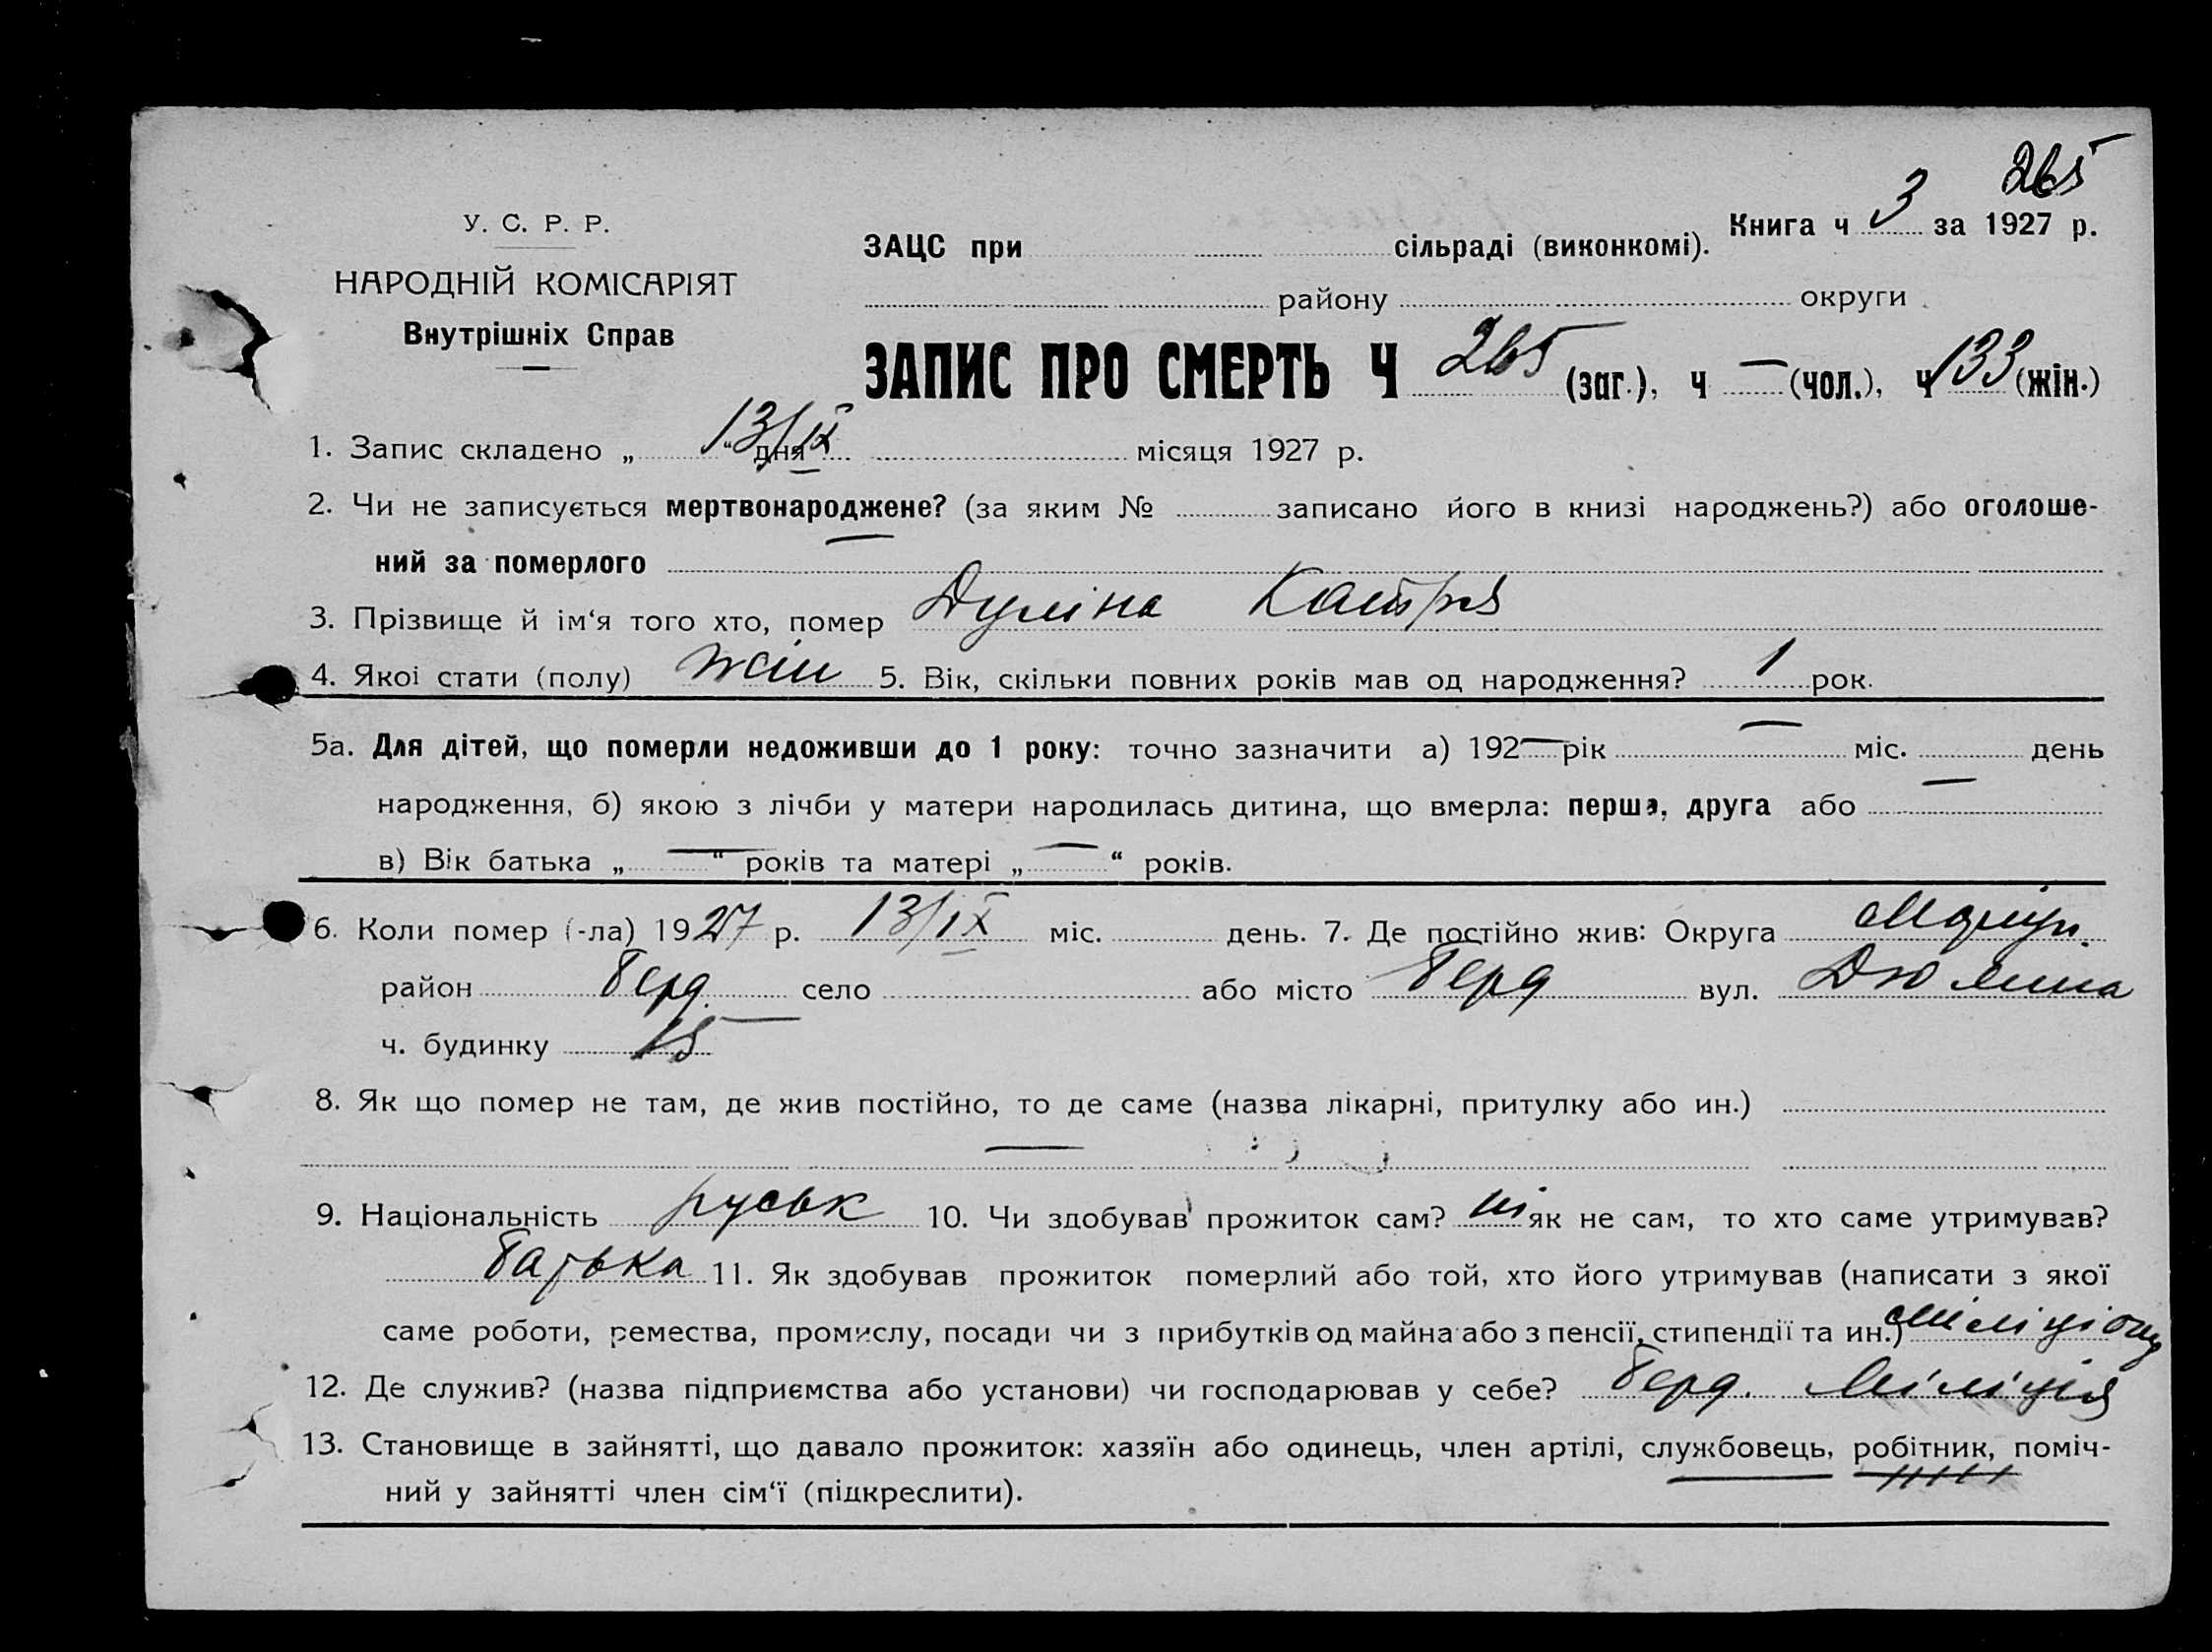 265
У. С. Р. Р.
Книга ч 3 за 1927 р.
ЗАЦС при сільраді (виконкомі).
НАРОДНІЙ КОМІСАРІЯТ
району округи
Внутрішніх Справ
ЗАПИС ПРО СМЕРТЬ Ч 265 (заг.), ч — (чол.), ч 133 (жін.)
1. Запис складено „ 13/IX “ дня місяця 1927 р.
2. Чи не записується мертвонароджене? (за яким № записано його в книзі народжень?) або оголоше-
ний за померлого —
3. Прізвище й ім‘я того хто, помер Дуліна Катря
4. Якої стати (полу) жін 5. Вік, скільки повних років мав од народження? 1 рок.
5а. Для дітей, що померли недоживши до 1 року: точно зазначити а) 192— рік — міс. день
народження, б) якою з лічби у матери народилась дитина, що вмерла: перша, друга або —
в) Вік батька „ — “ років та матері „ — “ років.
6. Коли помер (-ла) 1927 р. 13/IX міс. день. 7. Де постійно жив: Округа Маріуп.
район Берд. село або місто Берд вул.
ч. будинку 15
8. Як що помер не там, де жив постійно, то де саме (назва лікарні, притулку або ин.)
—
9. Національність руськ 10. Чи здобував прожиток сам? ні як не сам, то хто саме утримував?
батька 11. Як здобував прожиток померлий або той, хто його утримував (написати з якої
саме роботи, ремества, промислу, посади чи з прибутків од майна або з пенсії, стипендії та ин.) міліціонер
12. Де служив? (назва підприємства або установи) чи господарював у себе? Берд. Міліція
13. Становище в зайнятті, що давало прожиток: хазяїн або одинець, член артілі, службовець, робітник, поміч-
ний у зайнятті член сім‘ї (підкреслити).